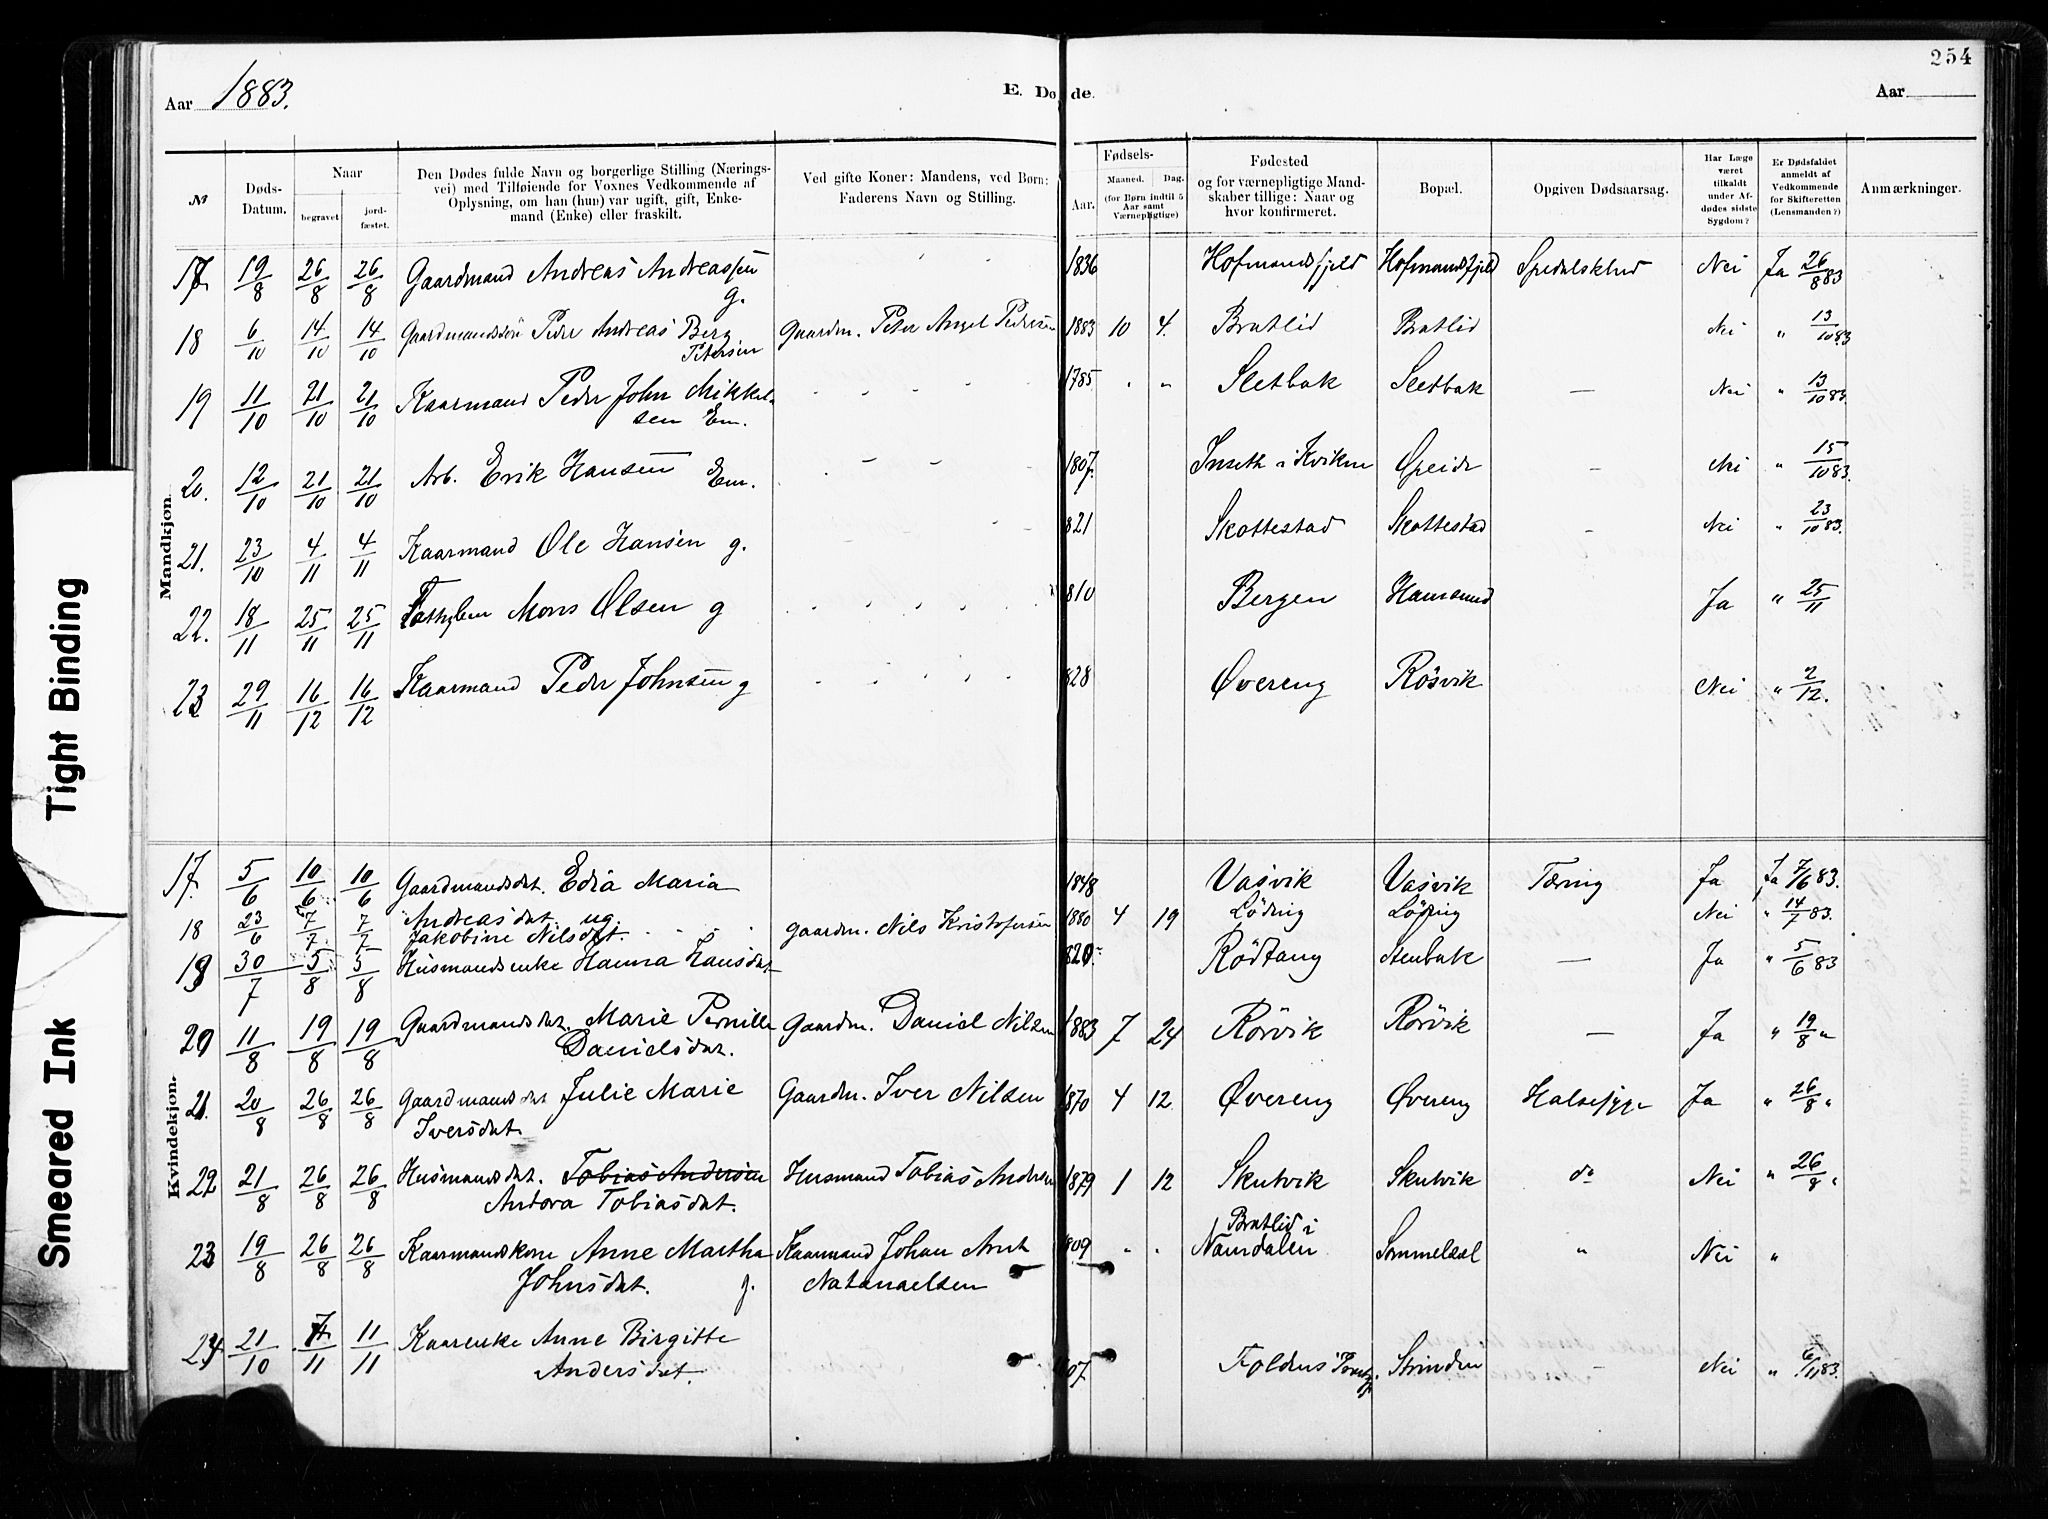 254
Aar 1883.
E. Dø de.
Aar
№
Døds-Datum.
Naar
begravet
jord-fæstet.
Den Dødes fulde Navn og borgerlige Stilling (Nærings-
vei) med Tilføiende for Voxnes Vedkommende af
Oplysning, om han (hun) var ugift, gift, Enke-
mand (Enke) eller fraskilt.
Ved gifte Koner: Mandens, ved Børn:
Faderens Navn og Stilling.
Fødsels-
Aar.
Maaned.
Dag.
(for Børn indtil 5
Aar samt
Værnepligtige)
Fødested
og for værnepligtige Mand-
skaber tillige: Naar og
hvor konfirmeret.
Bopæl.
Opgiven Dødsaarsag.
Har Læge
været
tilkaldt
under Af-
dødes sidste
Sygdom?
Er Dødsfaldet
anmeldt af
Vedkommende
for Skifteretten
(Lensmanden?)
Anmærkninger.
Mandkjøn.
17 19/8 26/8 26/8 Gaardmand Andreas Andreassen g. 1836 Hofmandsfjeld Hofmandsfjeld Spedalskhed Nei Ja 26/8 83
18 6/10 14/10 14/10 Gaardmandssön Peder Andreas Berg Petersen Gaardm. Peter Angel Pedersen 1883 10 4. Bratlid Bratlid Nei " 13/10 83
19 11/10 21/10 21/10 Kaarmand Peder John Mikkelsen Em. 1785 " " Sletbak Sletbak — Nei " 13/10 83.
20. 12/10 21/10 21/10 Arb. Erik Hansen Em. 1807. Inseth i Kvikne Opeide — Nei " 15/10 83.
21. 23/10 4/11 4/11 Kaarmand Ole Hansen g. 821 Skottestad Skottestad — Nei " 23/10 83.
22. 18/11 25/11 25/11 Mons Olsen g 810 Bergen Hamsund Ja " 25/11
23 29/11 16/12 16/12 Kaarmand Peder Johnsen g 828 Øvereng Rösvik Nei " 2/12.
Kvindekjøn.
17. 5/6 10/6 10/6 Gaardmandsdat. Edia Maria Andreasdat. ug. 1848 Vasvik Vasvik Tæring Ja Ja 7/6 83.
18 23/6 7/7 7/7 Jakobine Nilsdt. Gaardm. Nils Kristofersen 1880 4 19 Löding Löding Nei " 14/7 83.
19 30/7 5/8 5/8 Husmandsenke Hanna Hansdat 820 Rödtang Stenbak — Ja " 5/6 83
20 11/8 19/8 19/8 Gaardmandsdat. Marie Pernille Danielsdat. Gaardm. Daniel Nilsen 1883 7 24 Rörvik Rörvik — Ja " 19/8 "
21. 20/8 26/8 26/8 Gaardmandsdat Julie Marie Iversdat. Gaardm. Iver Nilsen 1870 4 12. Øvereng Øvereng Halsesyge Ja " 26/8 "
22 21/8 26/8 26/8 Husmandsdat. Tobias Andersen Andora Tobiasdat. Husmand Tobias Andersen 1879 1 12 Skutvik Skutvik do Nei " 26/8 "
23 19/8 26/8 26/8 Kaarmandskone Anne Martha Johnsdat. g. Kaarmand Johan Arnt Natanaelsen 809 " " Bratlid i Namdalen Sommelsæl " Nei "
24 21/10 4/11 11/11 Kaarenke Anne Birgitte Andersdat. 07. Foldens Strinden — Nei " 6/11 83.
Tight Binding
Smeared Ink